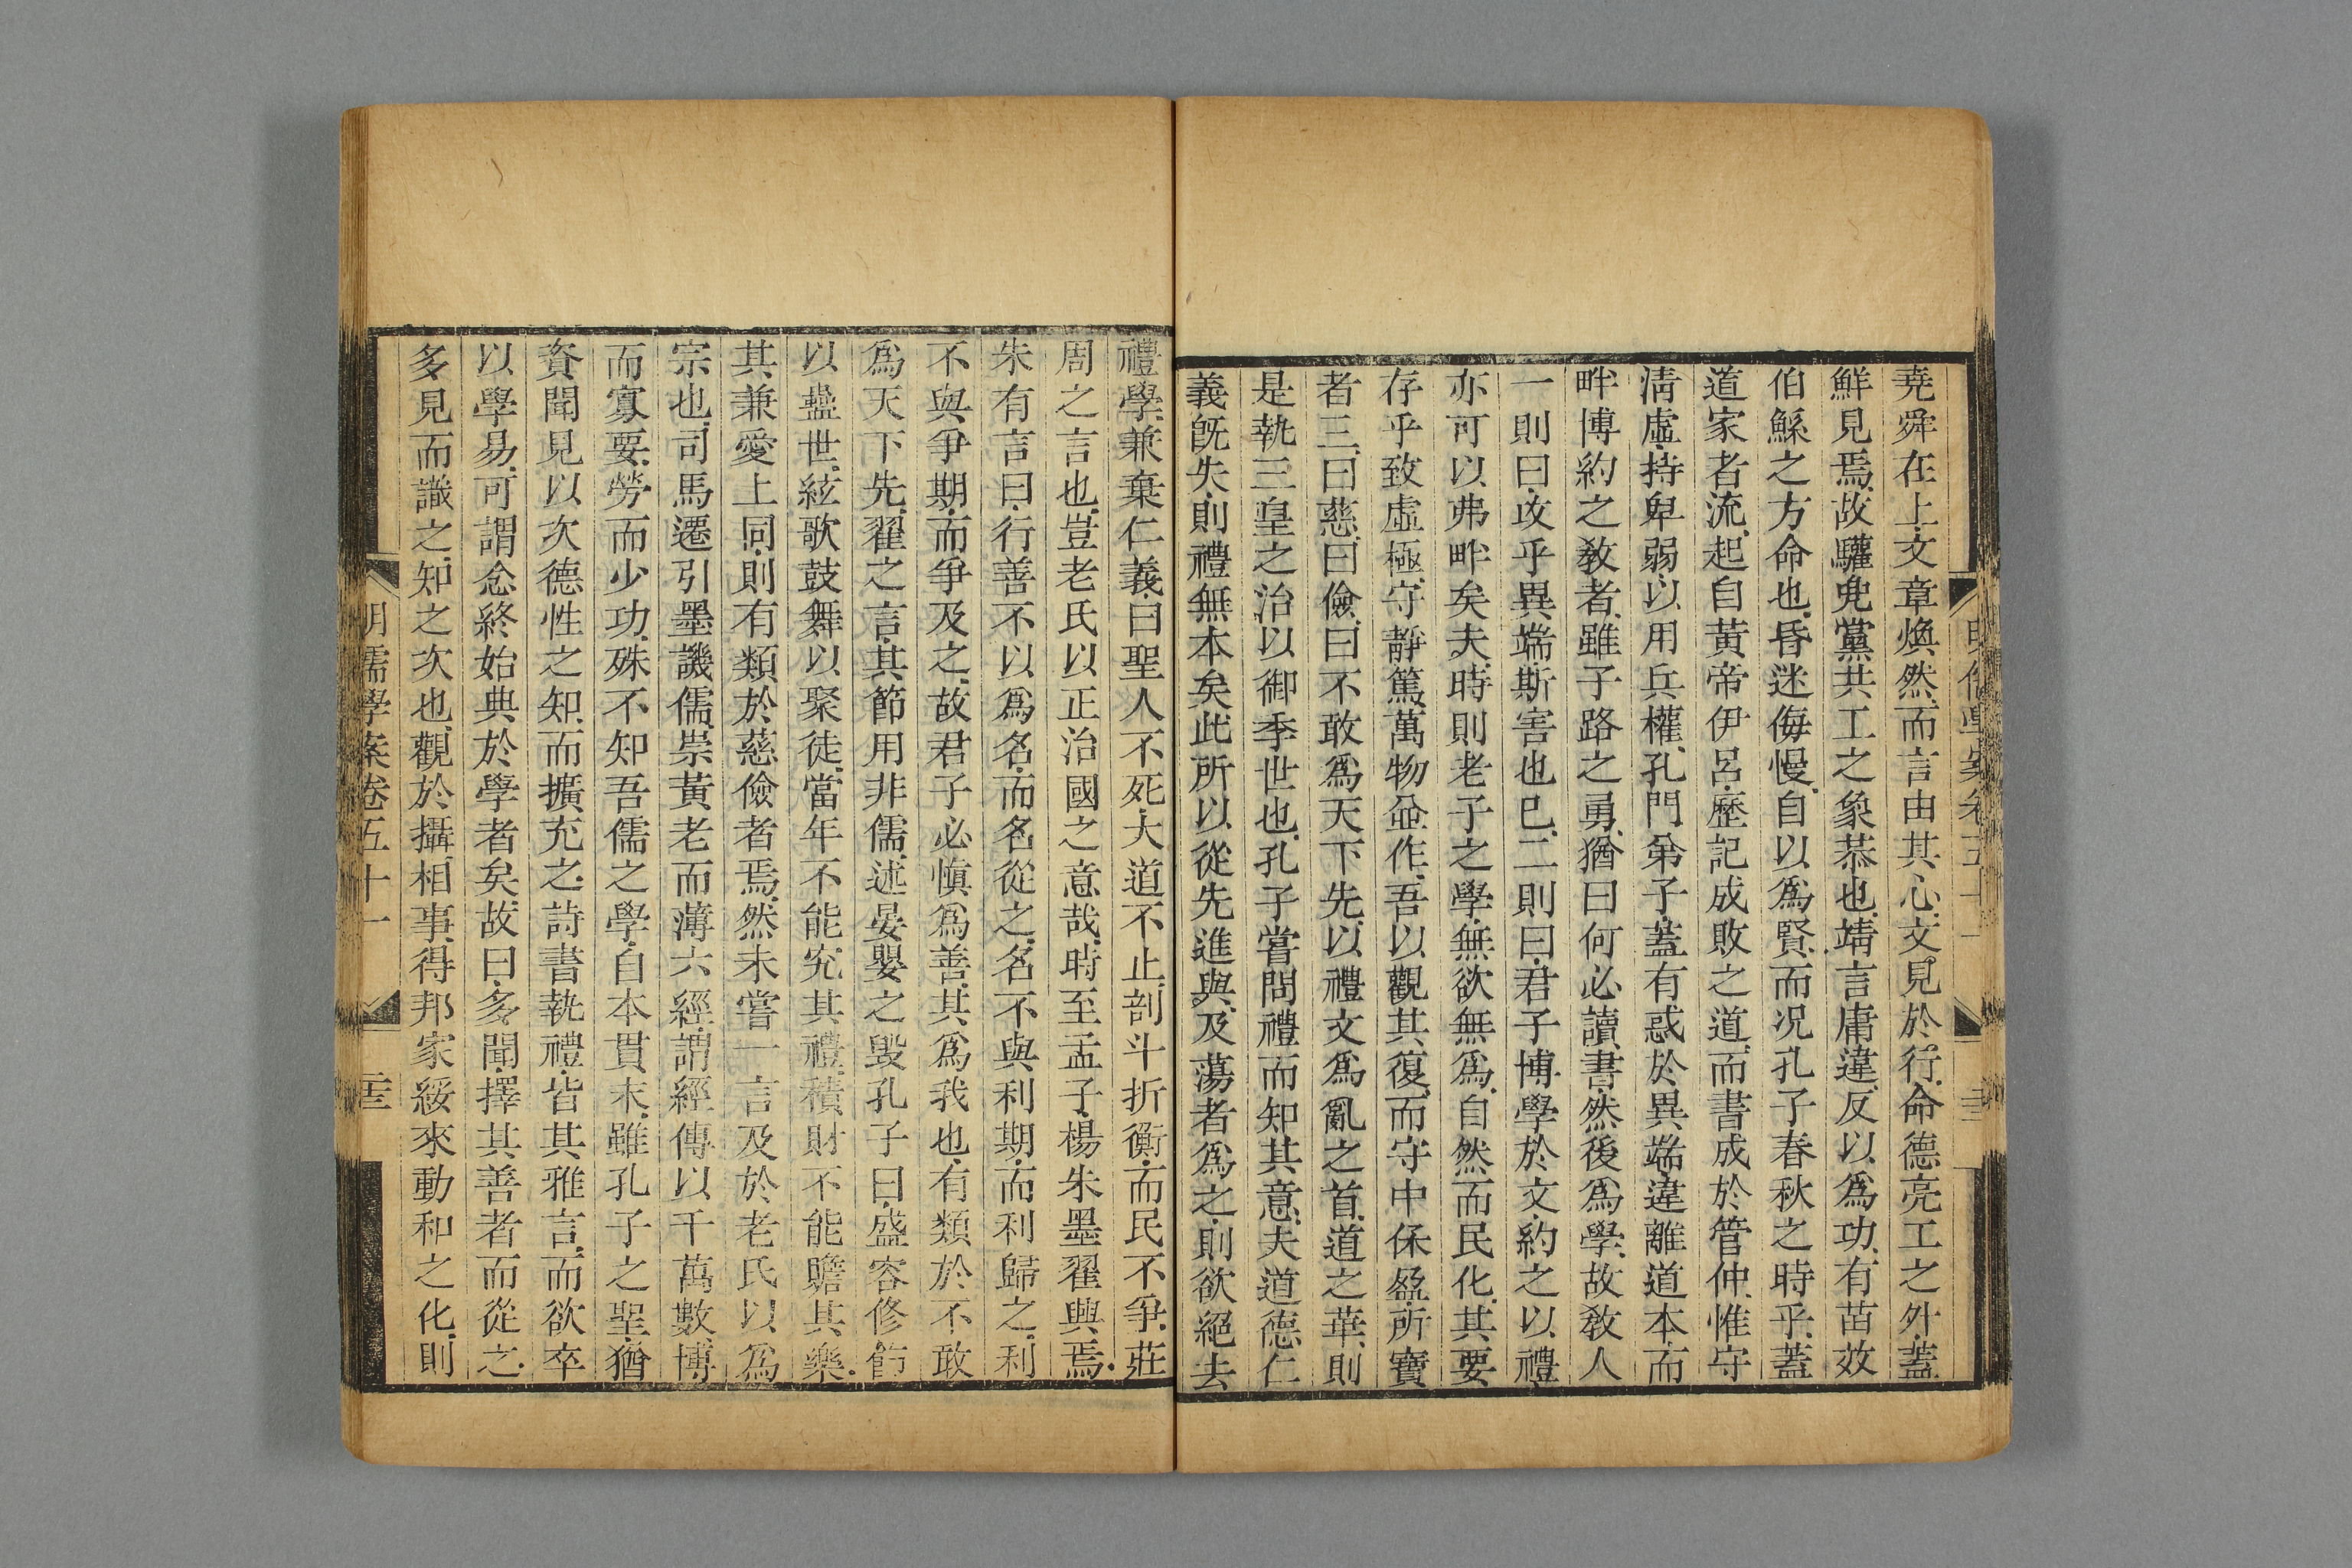 堯舜在上文章煥然而言由其心文見於行命德亮工之外蓋
鮮見焉故驩兜黨共工之象恭也靖言庸違反以爲功有苗效
伯鯀之方命也昏迷侮慢自以爲賢而况孔子春秋之時乎蓋
道家者流起自黃帝伊呂歷記成敗之道而書成於管仲惟守
清虛持卑弱以用兵權孔門弟子蓋有惑於異端違離道本而
畔博約之敎者雖子路之勇猶曰何必讀書然後爲學故敎人
一則曰攻乎異端斯害也已二則曰君子博學於文約之以禮
亦可以弗畔矣夫時則老子之學無欲無爲自然而民化其要
存乎致虛極守靜篤萬物並作吾以觀其復而守中保盈所寶
者三曰慈曰儉曰不敢爲天下先以禮文爲亂之首道之華則
是執三皇之治以御季世也孔子嘗問禮而知其意夫道德仁
義旣失則禮無本矣此所以從先進與及蕩者爲之則欲絕去
禮學兼棄仁義曰聖人不死大道不止剖斗折衡而民不爭莊
周之言也豈老氏以正治國之意哉時至孟子楊朱墨翟興焉
朱有言曰行善不以爲名而名從之名不與利期而利歸之利
不與爭期而爭及之故君子必愼爲善其爲我也有類於不敢
爲天下先翟之言其節用非儒述晏嬰之毁孔子曰盛容修飾
以蠱世絃歌鼓舞以聚徒當年不能究其禮積財不能贍其樂
其兼愛上同則有類於慈儉者焉然未嘗一言及於老氏以爲
宗也司馬遷引墨譏儒崇黃老而薄六經謂經傳以千萬數博
而寡要勞而少功殊不知吾儒之學自本貫末雖孔子之聖猶
資聞見以次德性之知而擴充之詩書執禮皆其雅言而欲卒
以學易可謂念終始典於學者矣故曰多聞擇其善者而從之
多見而識之知之次也觀於攝相事得邦家綏來動和之化則
明儒學案卷五十一